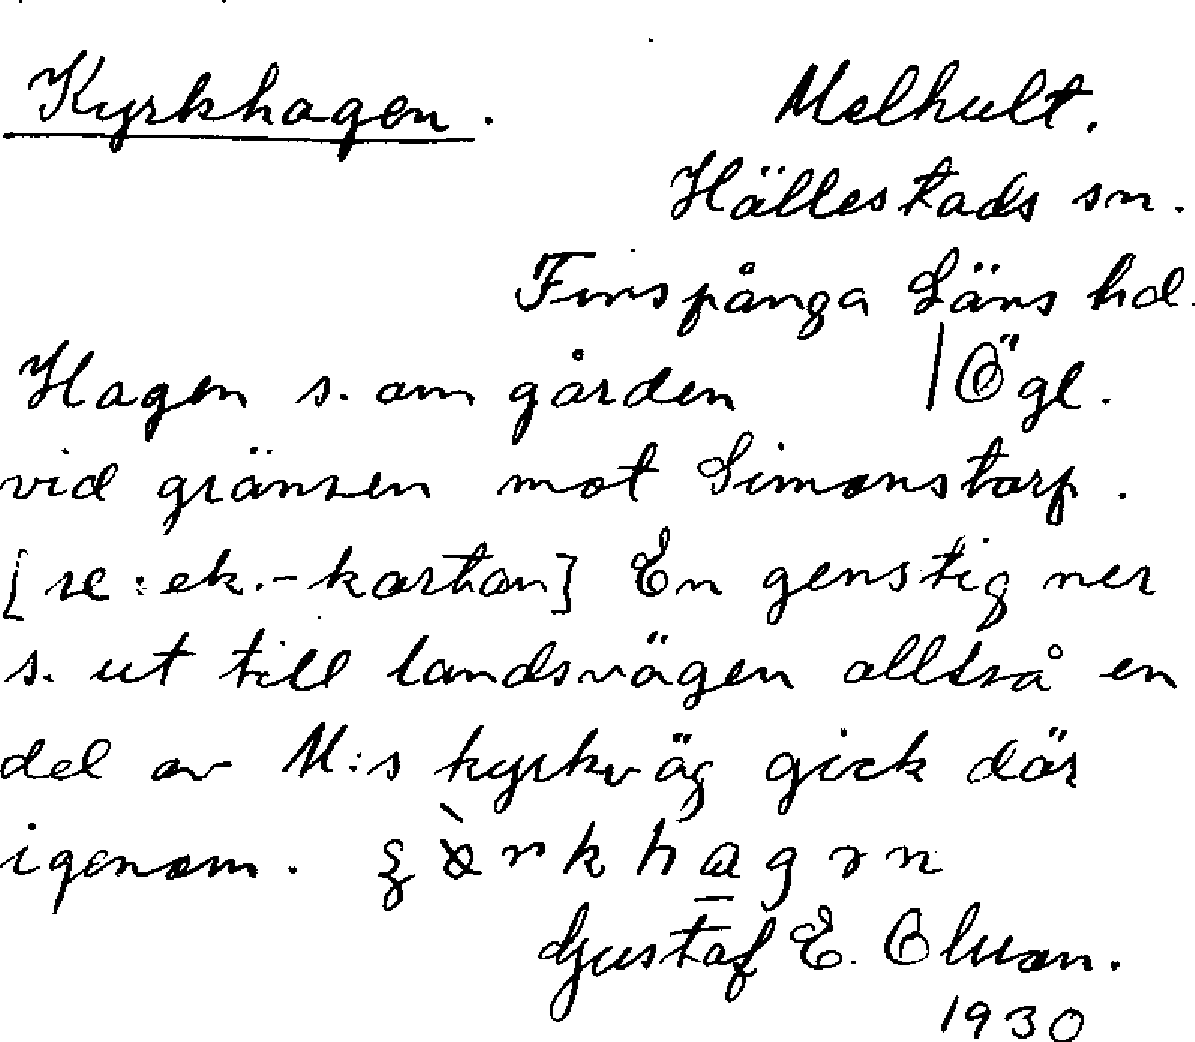 Kyrkhagen. Melhult.
Hällestads sn.
Finspånga Läns hd.
Hagen s. om gården | Ögl.
vid gränsen mot Simonstorp.
[se: ek.-kartan] En genstig ner
s. ut till landsvägen alltså en
del av M:s kyrkväg gick där
igenom.
Gustaf E.
1930